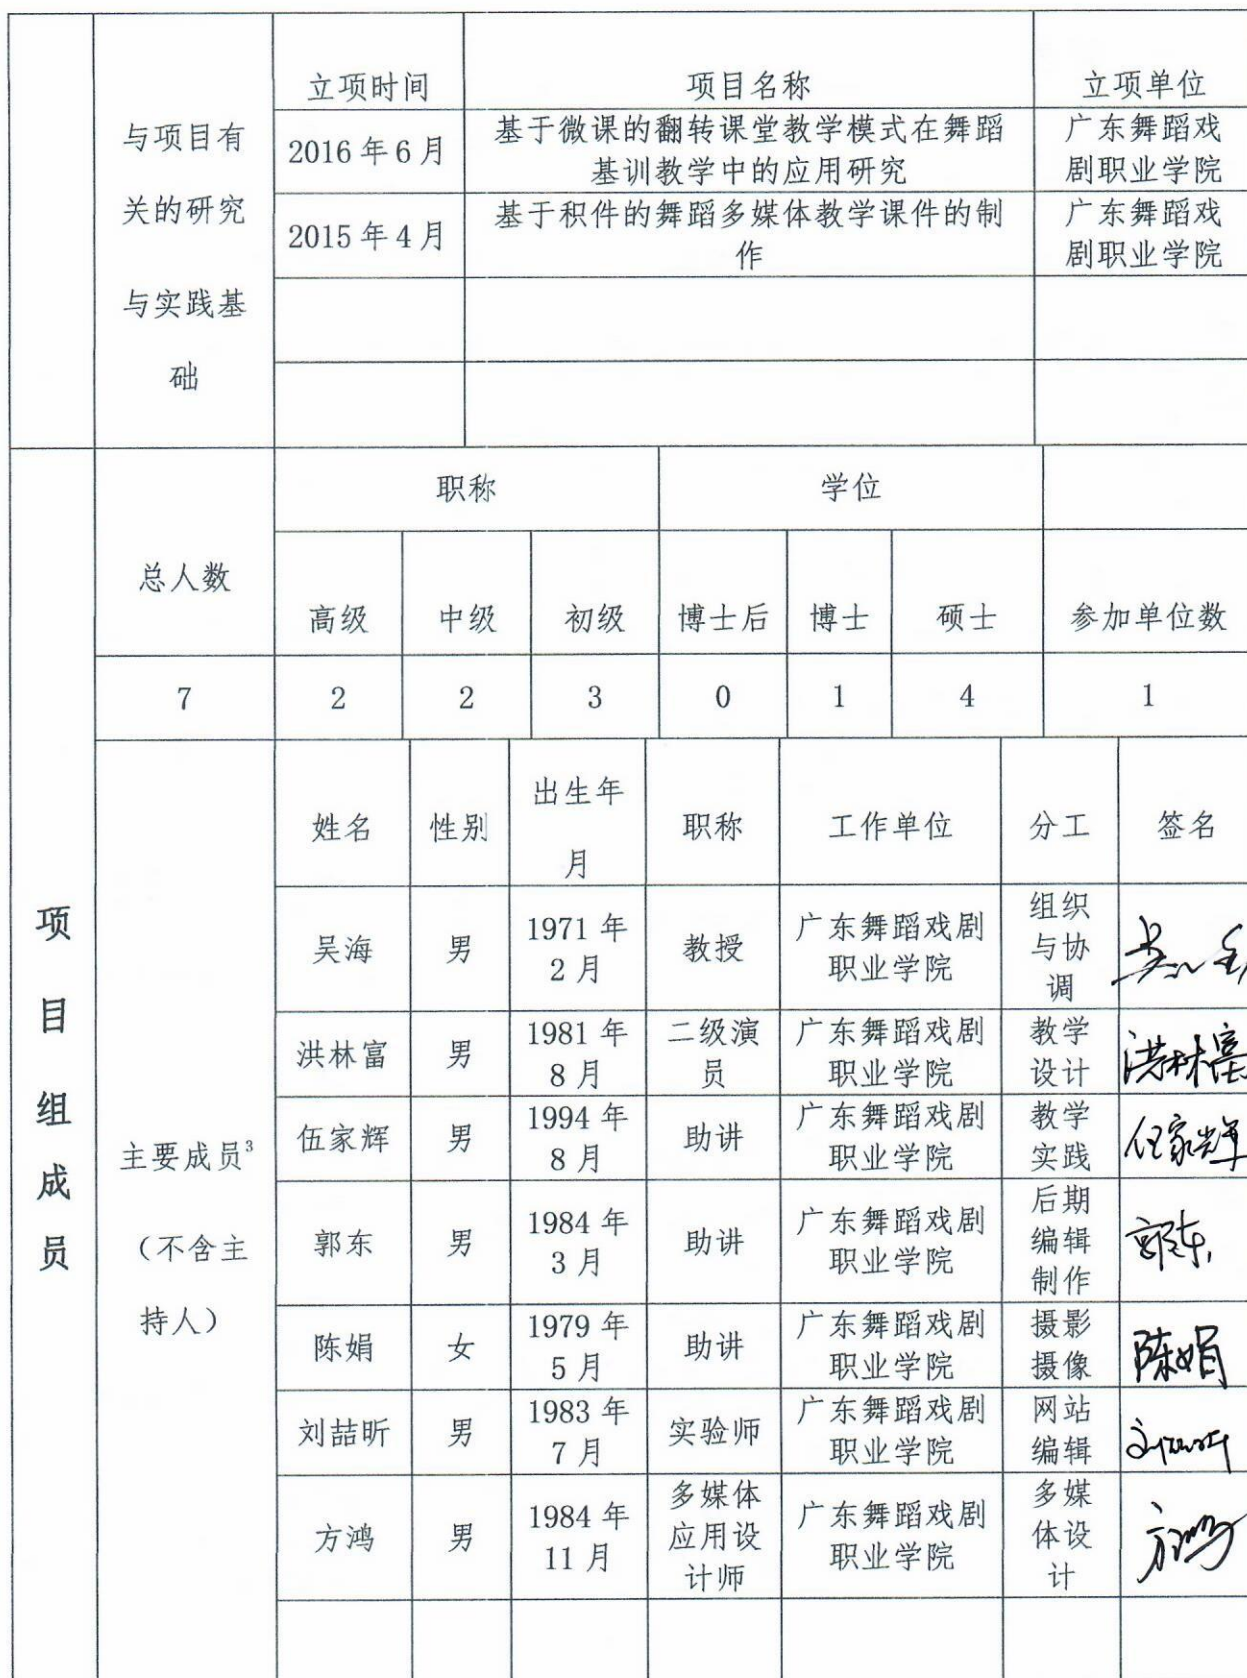 与项目有
关的研究
与实践基
础
立项时间 项目名称 立项单位
2016年6月 基于微课的翻转课堂教学模式在舞蹈
基训教学中的应用研究 广东舞蹈戏
剧职业学院
2015年4月 基于积件的舞蹈多媒体教学课件的制
作 广东舞蹈戏
剧职业学院
项目组成员
总人数
职称 学位
高级 中级 初级 博士后 博士 硕士 参加单位数
7 2 2 3 0 1 4 1
主要成员3
(不含主
持人)
姓名 性别 出生年
月 职称 工作单位 分工 签名
吴海 男 1971年
2月 教授 广东舞蹈戏剧
职业学院 组织
与协
调
洪林富 男 1981年
8月 二级演
员 广东舞蹈戏剧
职业学院 教学
设计 洪林富
伍家辉 男 1994年
8月 助讲 广东舞蹈戏剧
职业学院 教学
实践 伍家辉
郭东 男 1984年
3月 助讲 广东舞蹈戏剧
职业学院 后期
编辑
制作 郭东
陈娟 女 1979年
5月 助讲 广东舞蹈戏剧
职业学院 摄影
摄像 陈娟
刘喆昕 男 1983年
7月 实验师 广东舞蹈戏剧
职业学院 网站
编辑
方鸿 男 1984年
11月 多媒体
应用设
计师 广东舞蹈戏剧
职业学院 多媒
体设
计 方鸿